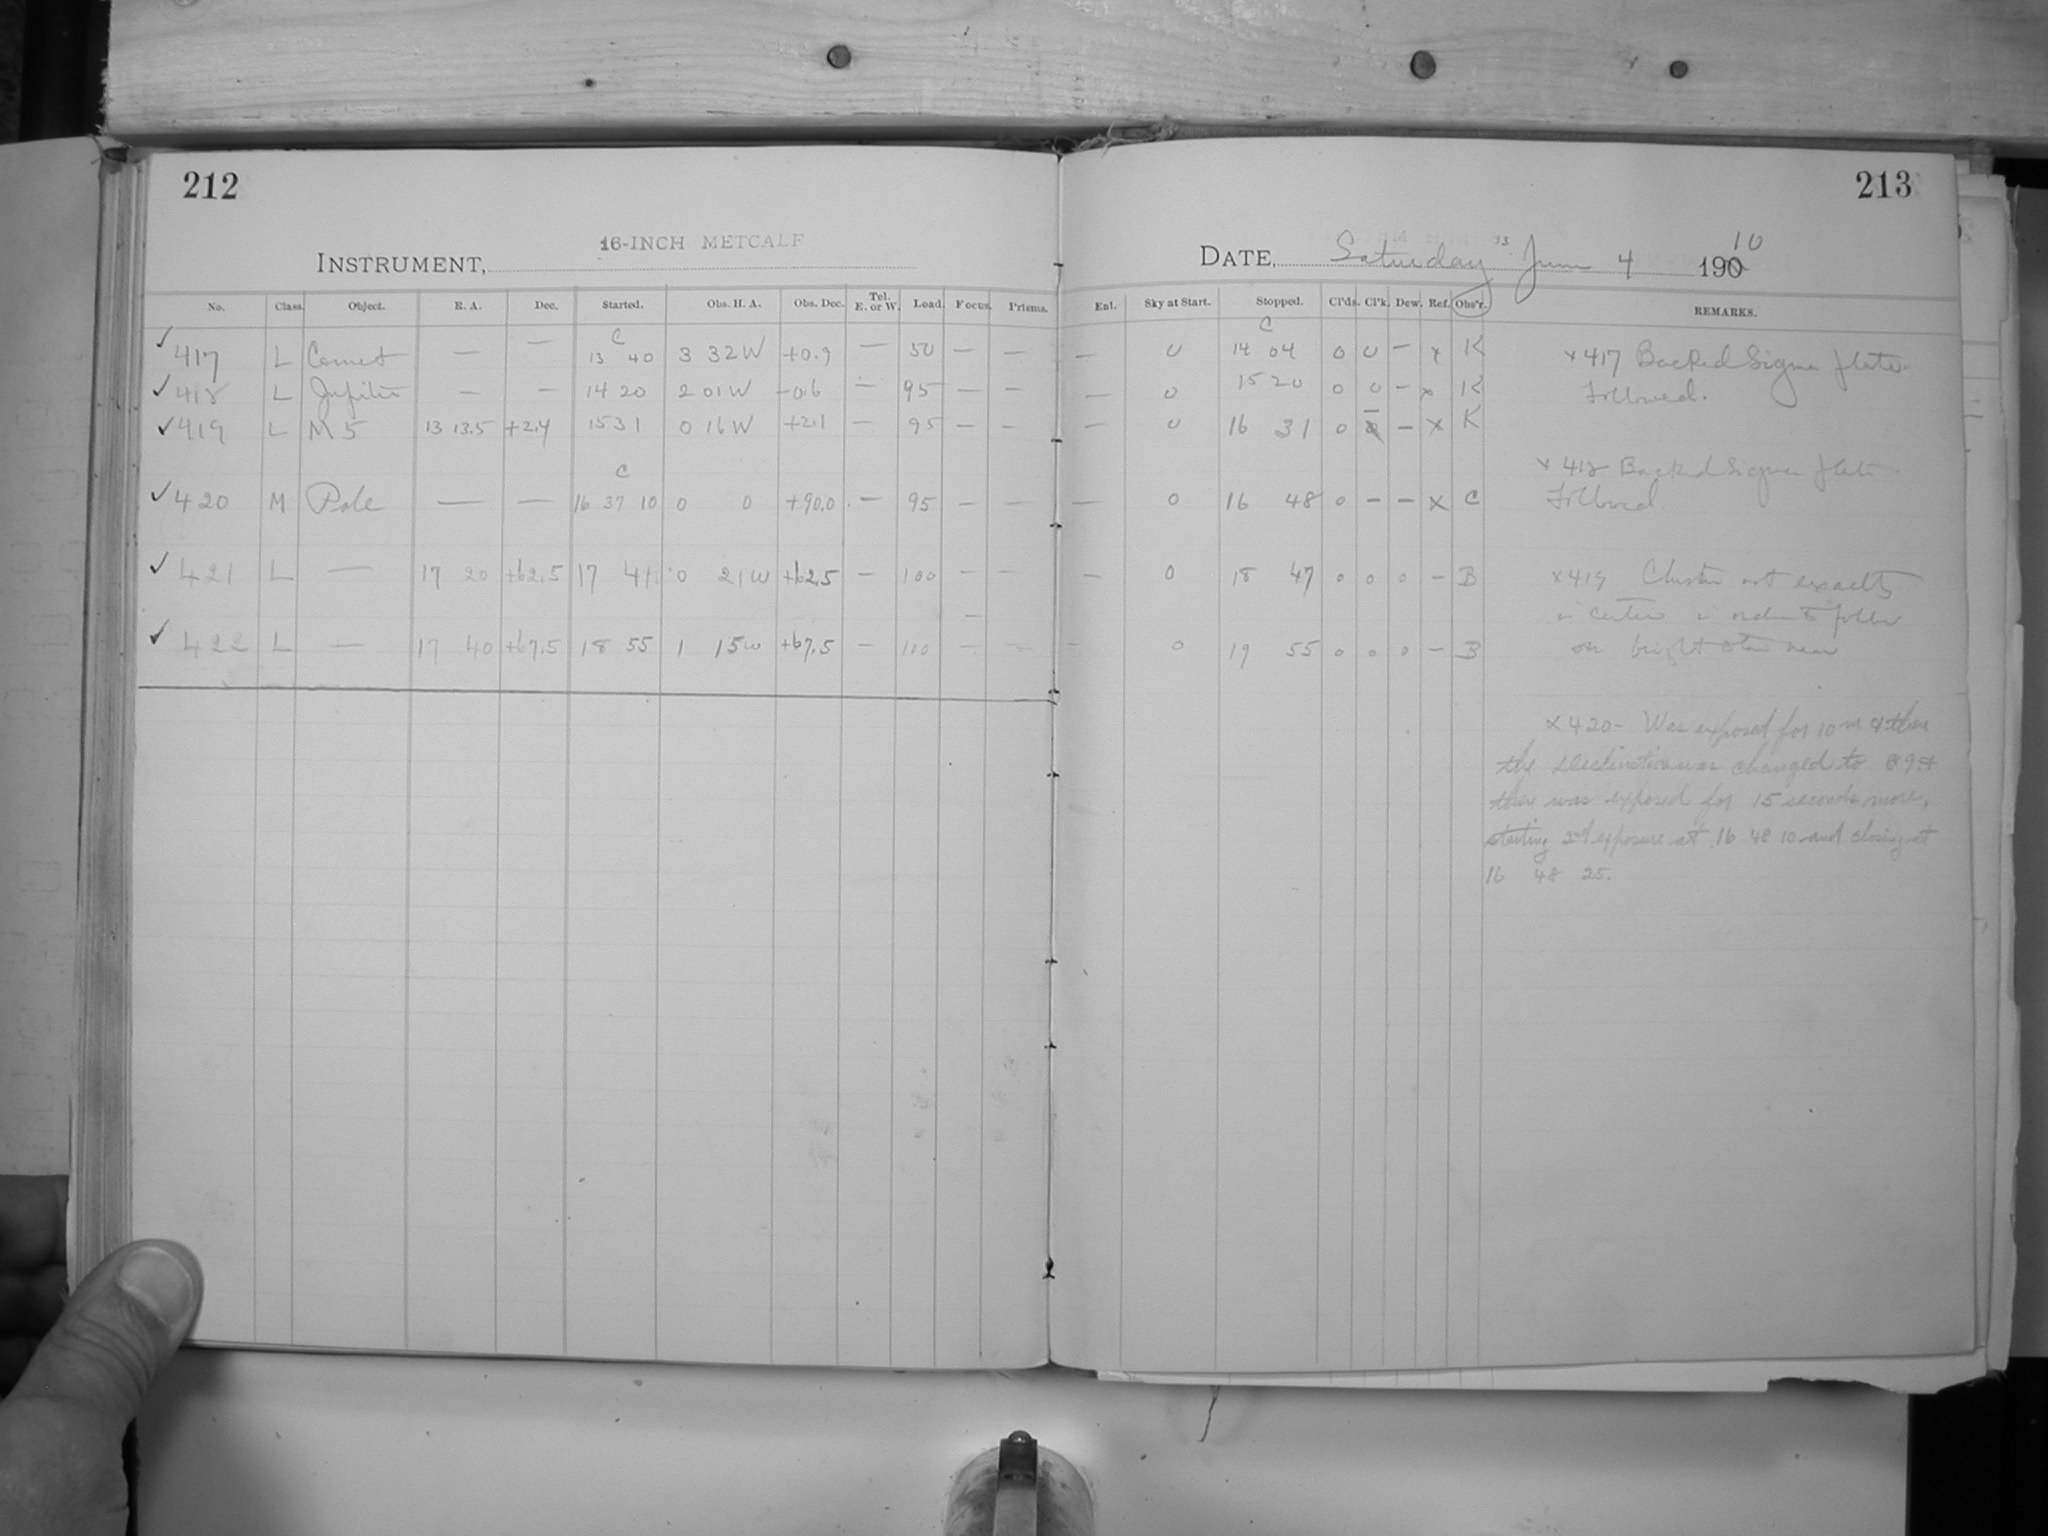 212
213
INSTRUMENT, 16-INCH METCALF
DATE, Saturday June 4 190 10
No. Class. Object. R. A. Dec. Started. Obs. H. A. Obs. Dec. Tel. E. or W. Load. Focus. Prisms. Enl. Sky at Start. Stopped. Cl'ds. Cl'k. Dew. Ref. Obs'r. REMARKS.
C C
✓ 417 L Comet — — 13 40 3 32 W +0.9 — 50 — — — 0 14 04 0 0 — x K
✓ 418 L Jupiter — — 14 20 2 01 W -0.6 — 95 — — — 0 15 20 0 0 — x K
✓ 419 L M 5 13 13.5 +2.4 15 31 0 16 W +2.1 — 95 — — — 0 16 31 0 — — x K
C
✓ 420 M Pole — — 16 37 10 0 0 +90.0 — 95 — — — 0 16 48 0 — — x C
✓ 421 L — 17 20 +62.5 17 41 0 21 W +62.5 — 100 — — — 0 18 47 0 0 0 — B
✓ 422 L — 17 40 +67.5 18 55 1 15 W +67.5 — 100 — — — 0 19 55 0 0 0 — B
x 417 Backed Sigma plate
Followed.
x 418 Backed Sigma plate
Followed
x 419 Cluster not exactly
in center in order to follow
on bright star near
x 420 - Was exposed for 10 m & then
the declination was changed to 89 &
then was exposed for 15 seconds more,
starting 2nd exposure at 16 48 10 and closing at
16 48 25.